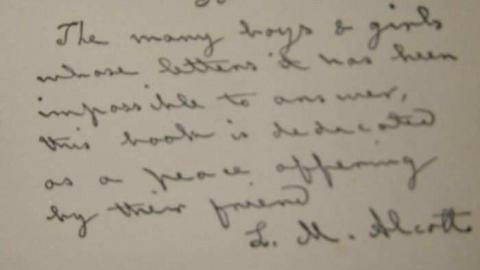 The many boys & girls
whose letters it has been
impossible to answer,
this book is dedicated
as a peace offering
by their friend
L. M. Alcott.